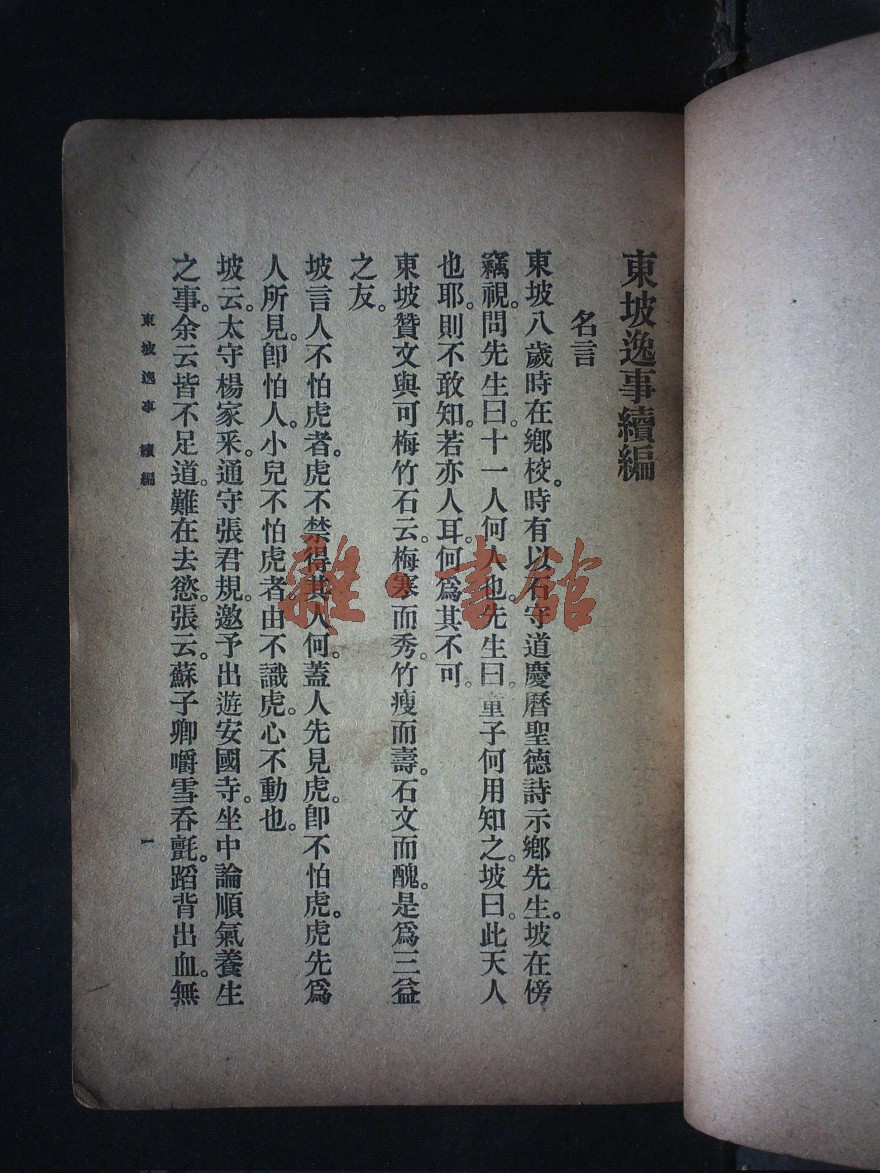 東坡逸事續編
名言
東坡八歲時在鄉校。時有以石守道慶曆聖德詩示鄉先生。坡在傍
竊視。問先生曰。十一人何人也。先生曰。童子何用知之。坡曰。此天人
也耶。則不敢知。若亦人耳。何爲其不可。
東坡贊文與可梅竹石云。梅寒而秀。竹瘦而壽。石文而醜。是爲三益
之友。
坡言人不怕虎者。虎不禁得其人何。蓋人先見虎。卽不怕虎。虎先爲
人所見。卽怕人。小兒不怕虎者。由不識虎。心不動也。
坡云。太守楊家采。通守張君規。邀予出遊安國寺。坐中論順氣養生
之事。余云皆不足道。難在去慾。張云。蘇子卿嚼雪吞氈。蹈背出血。無
東坡逸事 續編
一
雜·書館